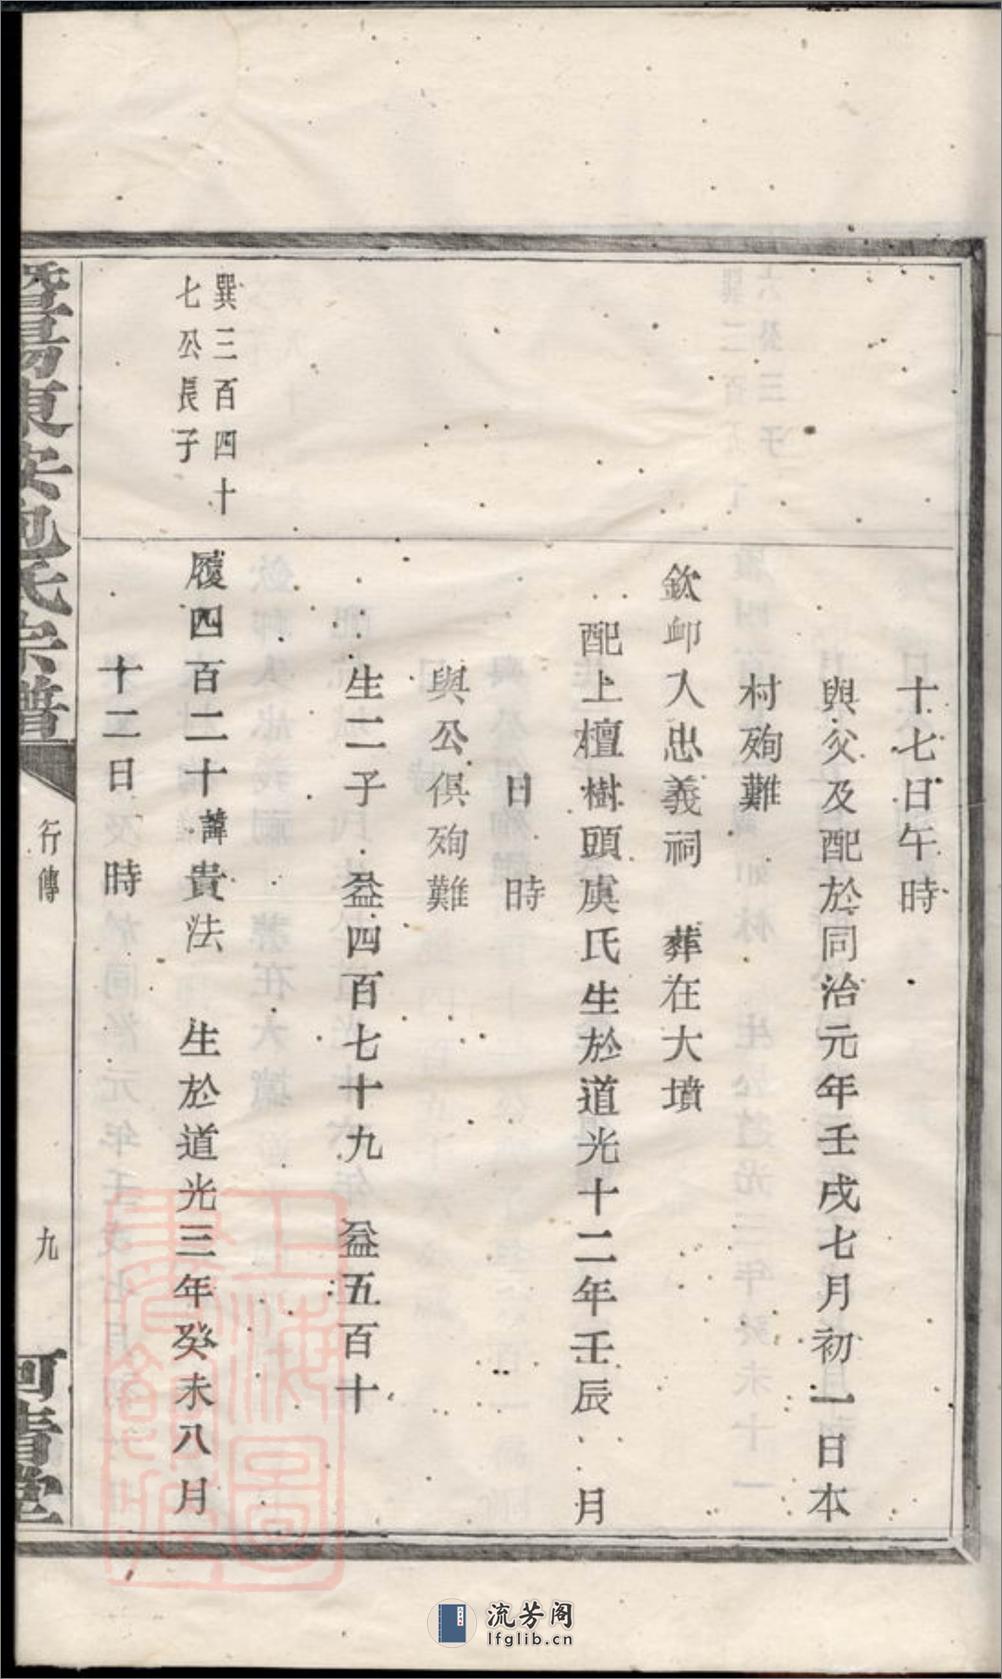 十七日午時
與父及配於同治元年壬戌七月初一日本
村殉難
欽卹入忠義祠　葬在大墳
配上檀樹頭虞氏生於道光十二年壬辰　月
日　時
與公俱殉難
生二子　益四百七十九　益五百十
巽三百四十
七公長子
履四百二十諱貴法　生於道光三年癸未八月
十二日　時
暨陽東安包氏宗譜
行傳
九
河清堂
上海圖書館藏
流芳阁
lfglib.cn